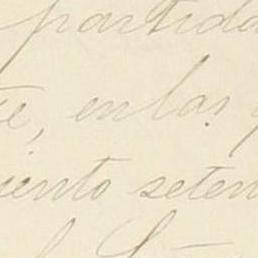 partida
te, en las
iento seten